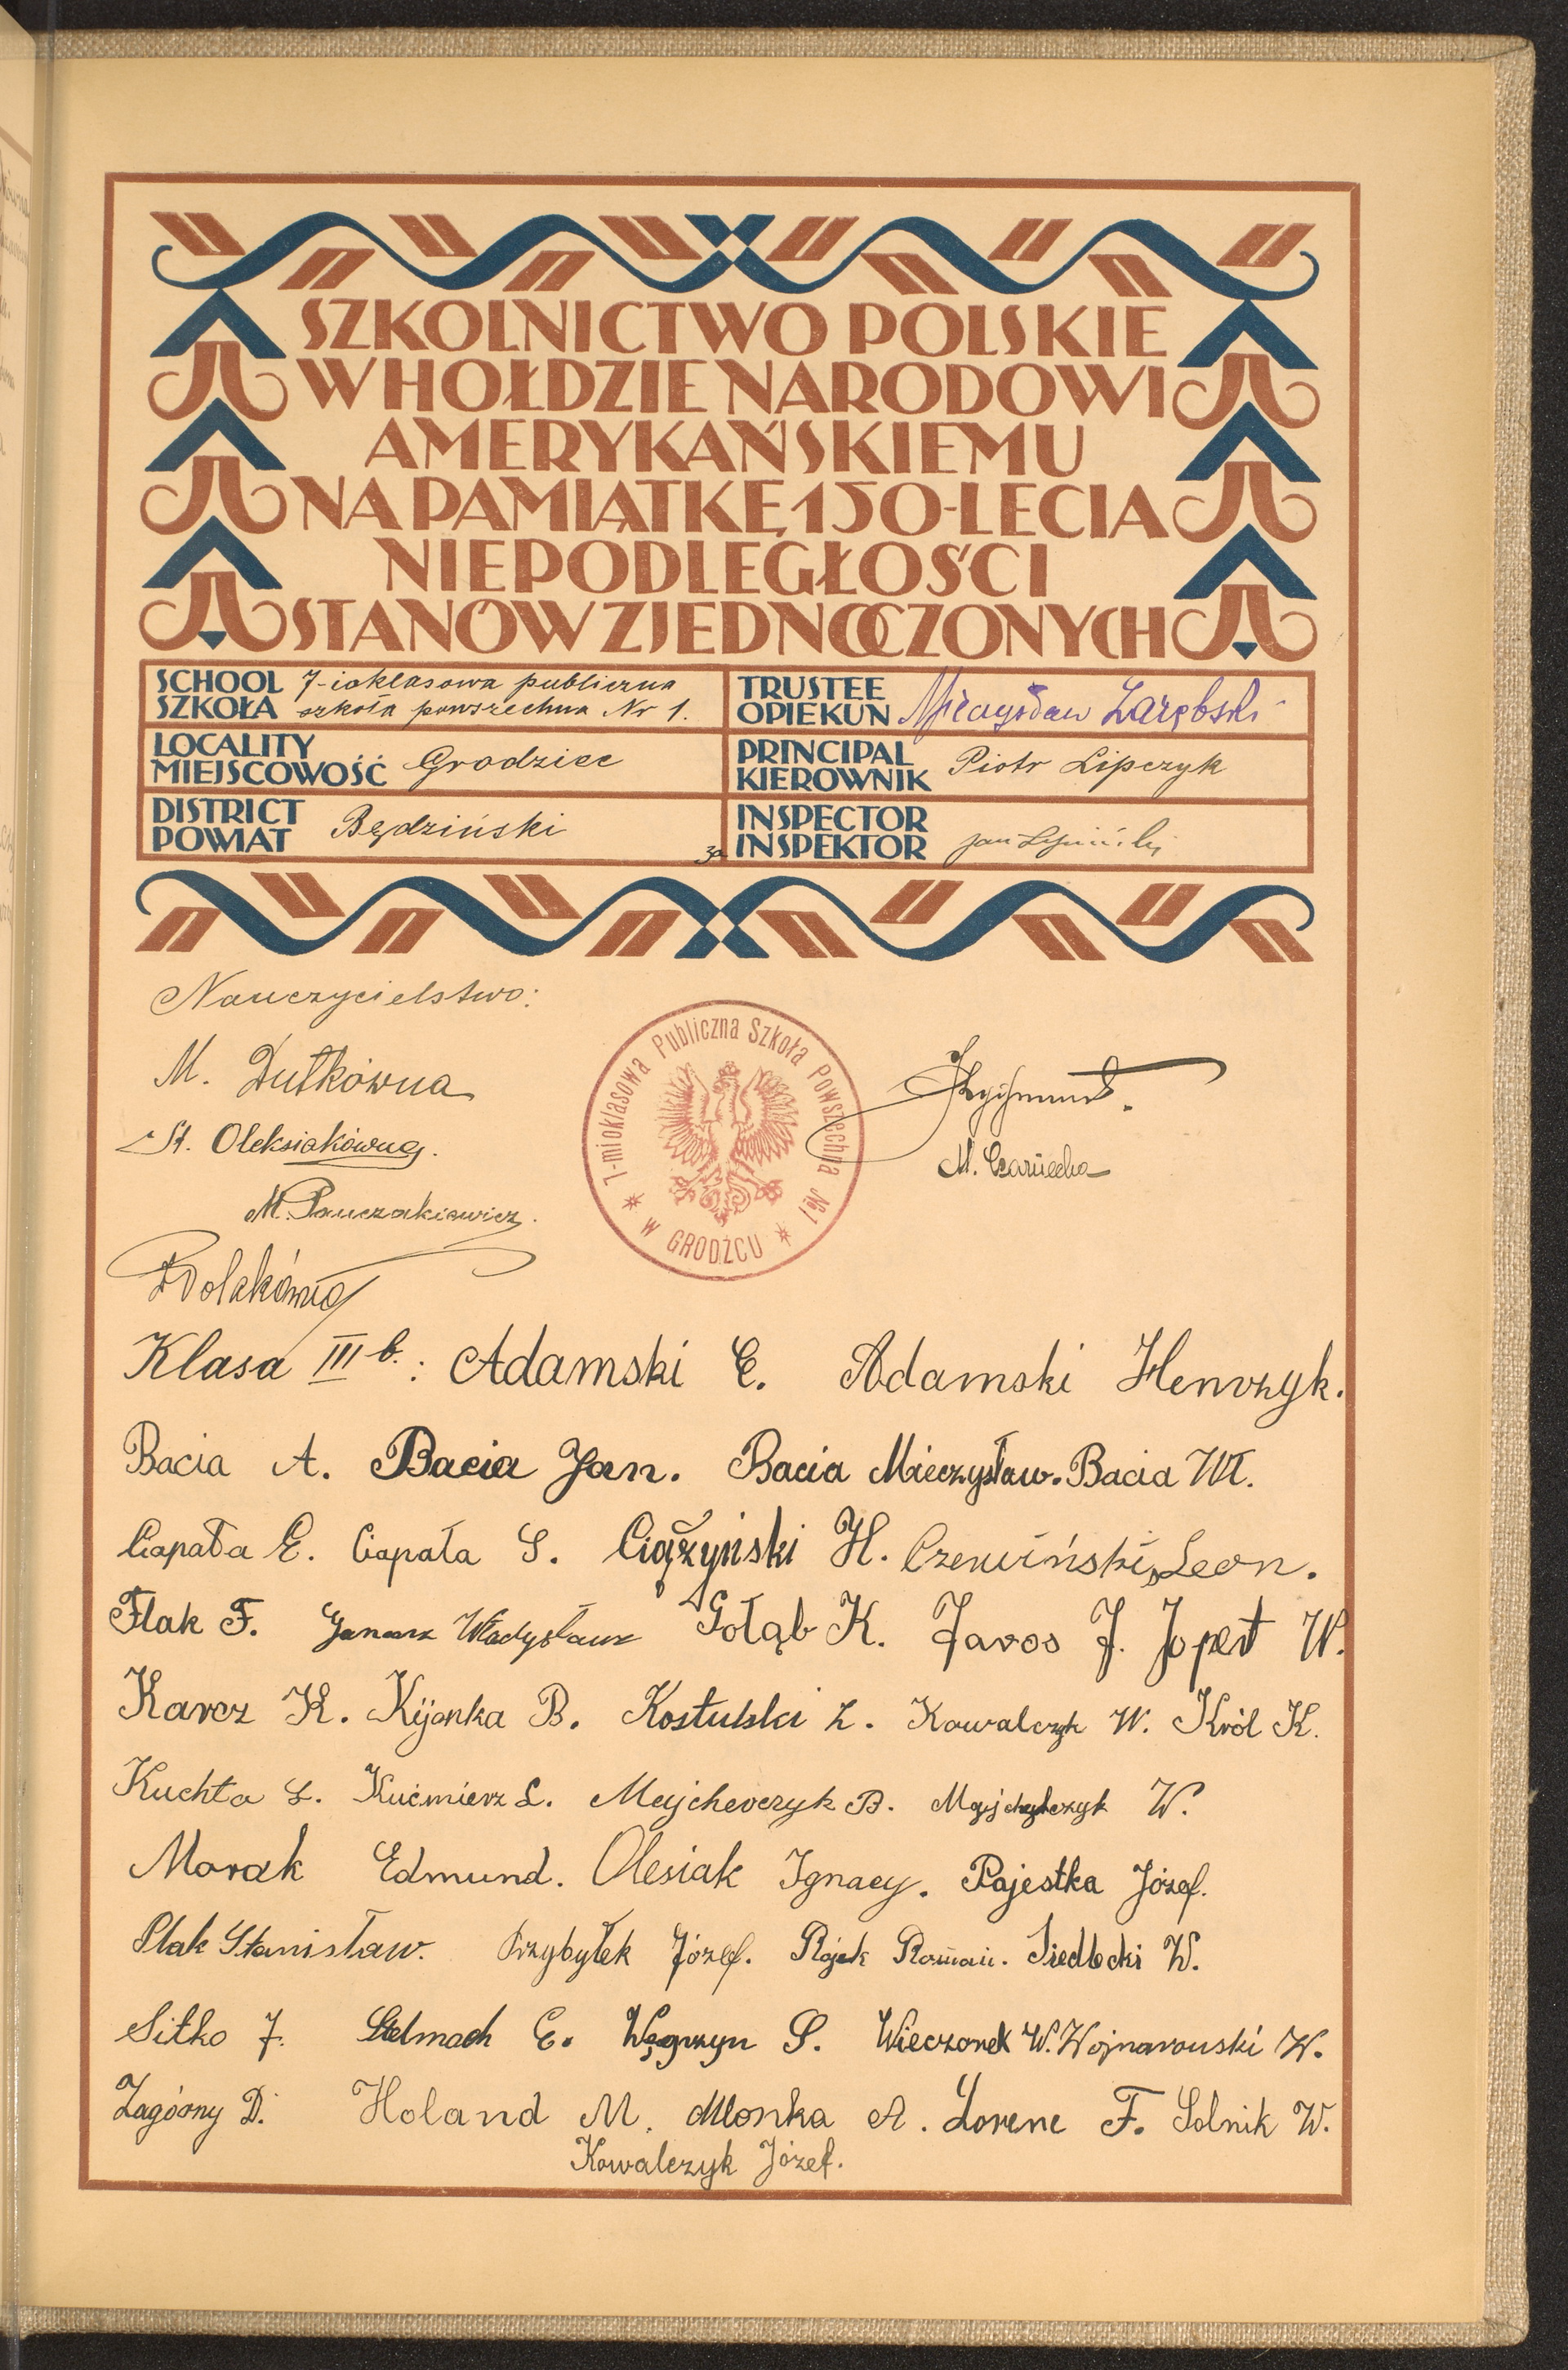 SZKOLNICTWO POLSKIE
W HOŁDZIE NARODOWI
AMERYKAŃSKIEMU
NA PAMIĄTKĘ 150-LECIA
NIEPODLEGŁOŚCI
STANÓW ZJEDNOCZONYCH
SCHOOL SZKOŁA 7-ioklasowa publiczna
szkoła powszechna Nr 1.
TRUSTEE OPIEKUN Mieczysław Zarębski
LOCALITY MIEJSCOWOŚĆ Grodziec
PRINCIPAL KIEROWNIK Piotr Lipczyk
DISTRICT POWIAT Będziński
za INSPECTOR INSPEKTOR Jan
Nauczycielstwo:
M. Dutkówna
St. Oleksiakówna.
M. Panczakiewicz.
7-mioklasowa Publiczna Szkoła Powszechna №1
W GRODŹCU
M. Czarnecka
Klasa III b. : Adamski E. Adamski Henryk.
Bacia A. Bacia Jan. Bacia Mieczysław. Bacia Wł.
Ciapała E. Ciapała S. Ciążyński H. Czerwiński Leon.
Flak F. Władysław Gołąb K. Jaros J. Jopert W.
Karcz K. Kijonka B. Kostulski Z. Kowalczyk W. Król K.
Kuchta L. Kućmierz L. Majcherczyk B. Majcherczyk W.
Morak Edmund. Olesiak Ignacy. Pajestka Józef.
Ptak Stanisław. Przybyłek Józef. Rojek Roman. Siedlecki W.
Sitko J. Stelmach E. Węgrzyn S. Wieczorek W. Wojnarowski W.
Zagórny D. Holand M. Mlonka A. Lorenc F. Solnik W.
Kowalczyk Józef.